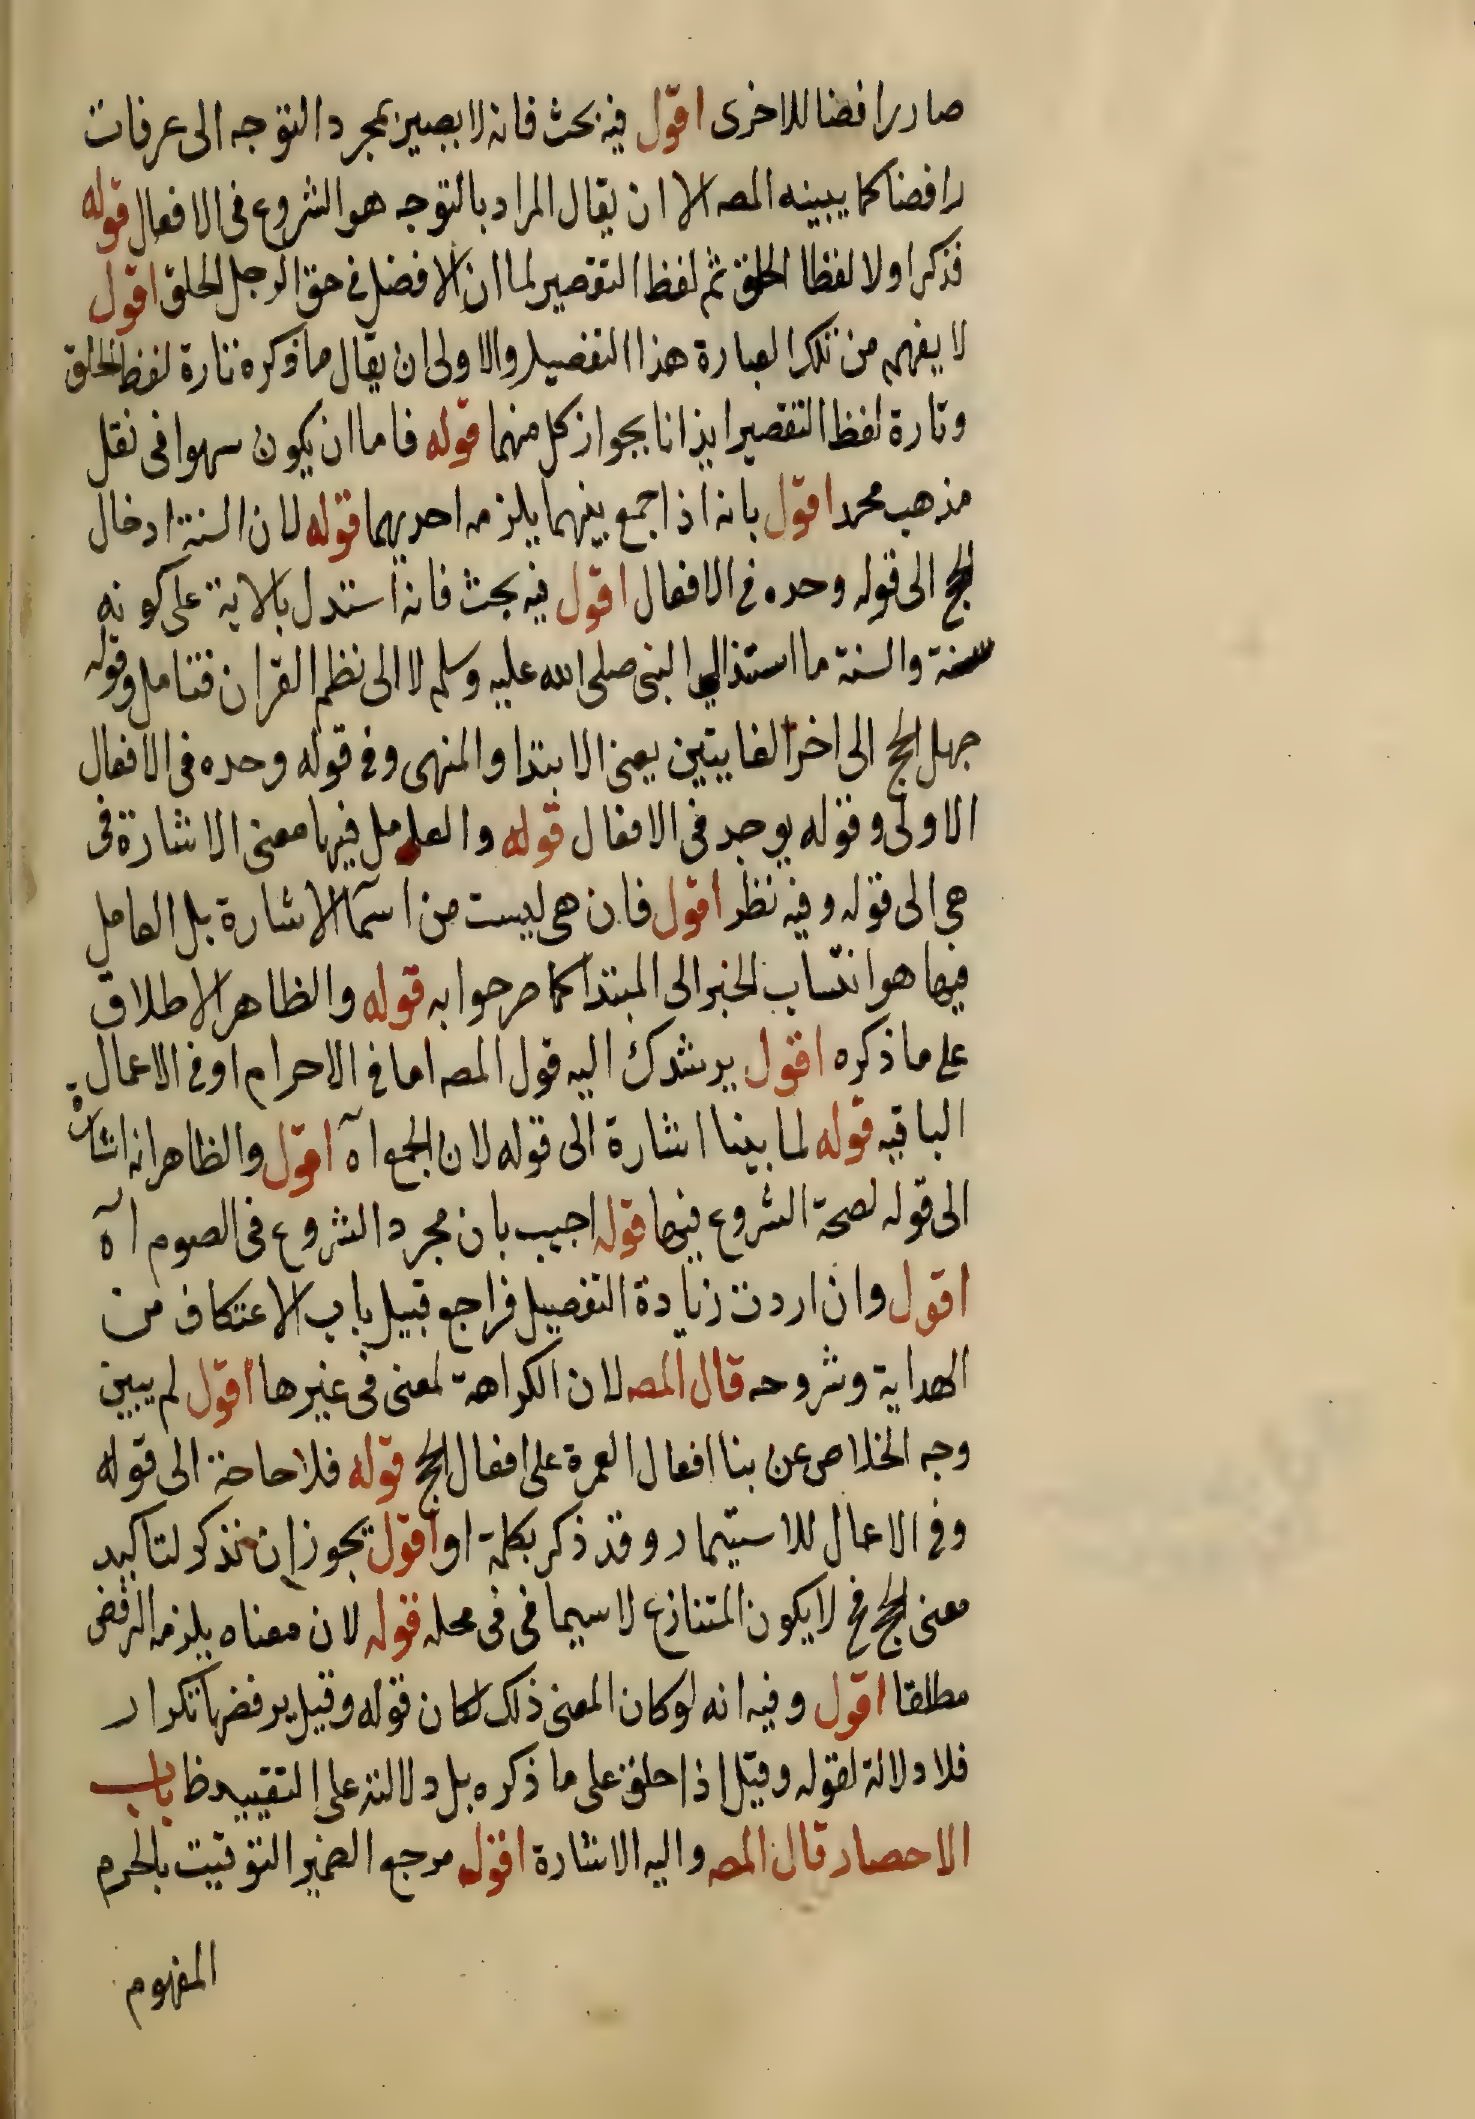 صار رافضا للاخرى اقول فيه بحث فانه لا يصير بمجرد التوجه الى عرفات
رافضا كما يبينه المصه الا ان يقال المراد بالتوجه هو الشروع فى الافعال قوله
فذكر اولا لفظا الحلق ثم لفظ التقصير لما ان الافضل فى حق الرجل الحلق اقول
لا يفهم من تلك العبارة هذا التفصيل والاولى ان يقال ما ذكره تارة لفظ الحلق
وتارة لفظ التقصير ايذانا بجواز كل منهما قوله فاما ان يكون سهوا فى نقل
مذهب محمد اقول بانه اذا جمع بينهما يلزمه احديهما قوله لان السنة ادخال
الحج الى قوله وحده فى الافعال اقول فيه بحث فانه استدل بالاية على كونه
سنة والسنة ما استند الى النبى صلى الله عليه وسلم لا الى نظم القران فتامل وقوله
جهل الحج الى اخر الغايتين يعنى الابتدا والمنهى وفى قوله وحده فى الافعال
الاولى وقوله يوجد فى الافعال قوله والعامل فيها معنى الاشارة فى
هى الى قوله وفيه نظر اقول فان هى ليست من اسما الاشارة بل العامل
فيها هو انتساب الخبر الى المبتدا كما صرحوا به قوله والظاهر الاطلاق
على ما ذكره اقول يرشدك اليه قول المصه اما فى الاحرام او فى الاعمال
الباقيه قوله لما بينا اشارة الى قوله لان الجمع اه اقول والظاهر انه اشارة
الى قوله لصحة الشروع فيها قوله اجيب بان مجرد الشروع فى الصوم اه
اقول وان اردت زيادة التفصيل فراجع قبيل باب الاعتكاف من
الهداية وشروحه قال المصه لان الكراهة لمعنى فى غيرها اقول لم يبين
وجه الخلاص عن بنا افعال العمرة على افعال الحج قوله فلا حاجة الى قوله
وفى الاعمال للاستيمار وقد ذكر بكلمة او اقول يجوز ان تذكر لتاكيد
معنى الحج فح لا يكون المتنازع لا سيما فى فى محله قوله لان معناه يلزمه الرفض
مطلقا اقول وفيه انه لو كان المعنى ذلك لكان قوله وقيل يرفضها تكرار
فلا دلالة لقوله وقيل اذا حلق على ما ذكره بل دلالته على التقييد ظ باب
الاحصار قال المصه واليه الاشارة اقوله مرجع الضمير التوقيت بالحرم
المفهوم